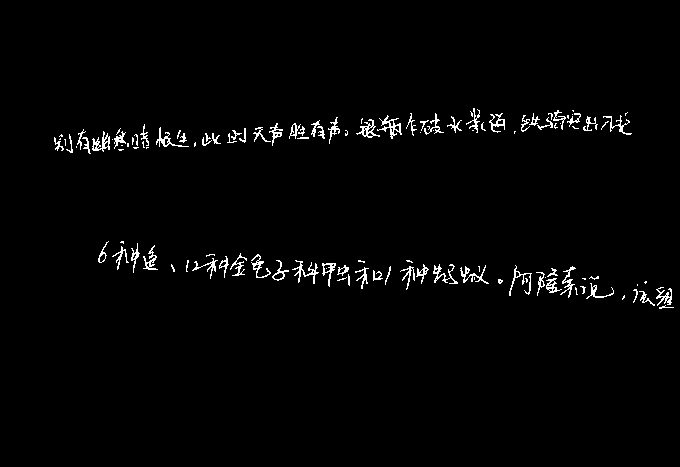 别有幽愁暗恨生,此时无声胜有声。银瓶乍破水浆迸,铁骑突出刀枪
6种鱼、12种金龟子科甲虫和1种蚂蚁。阿隆索说,该组